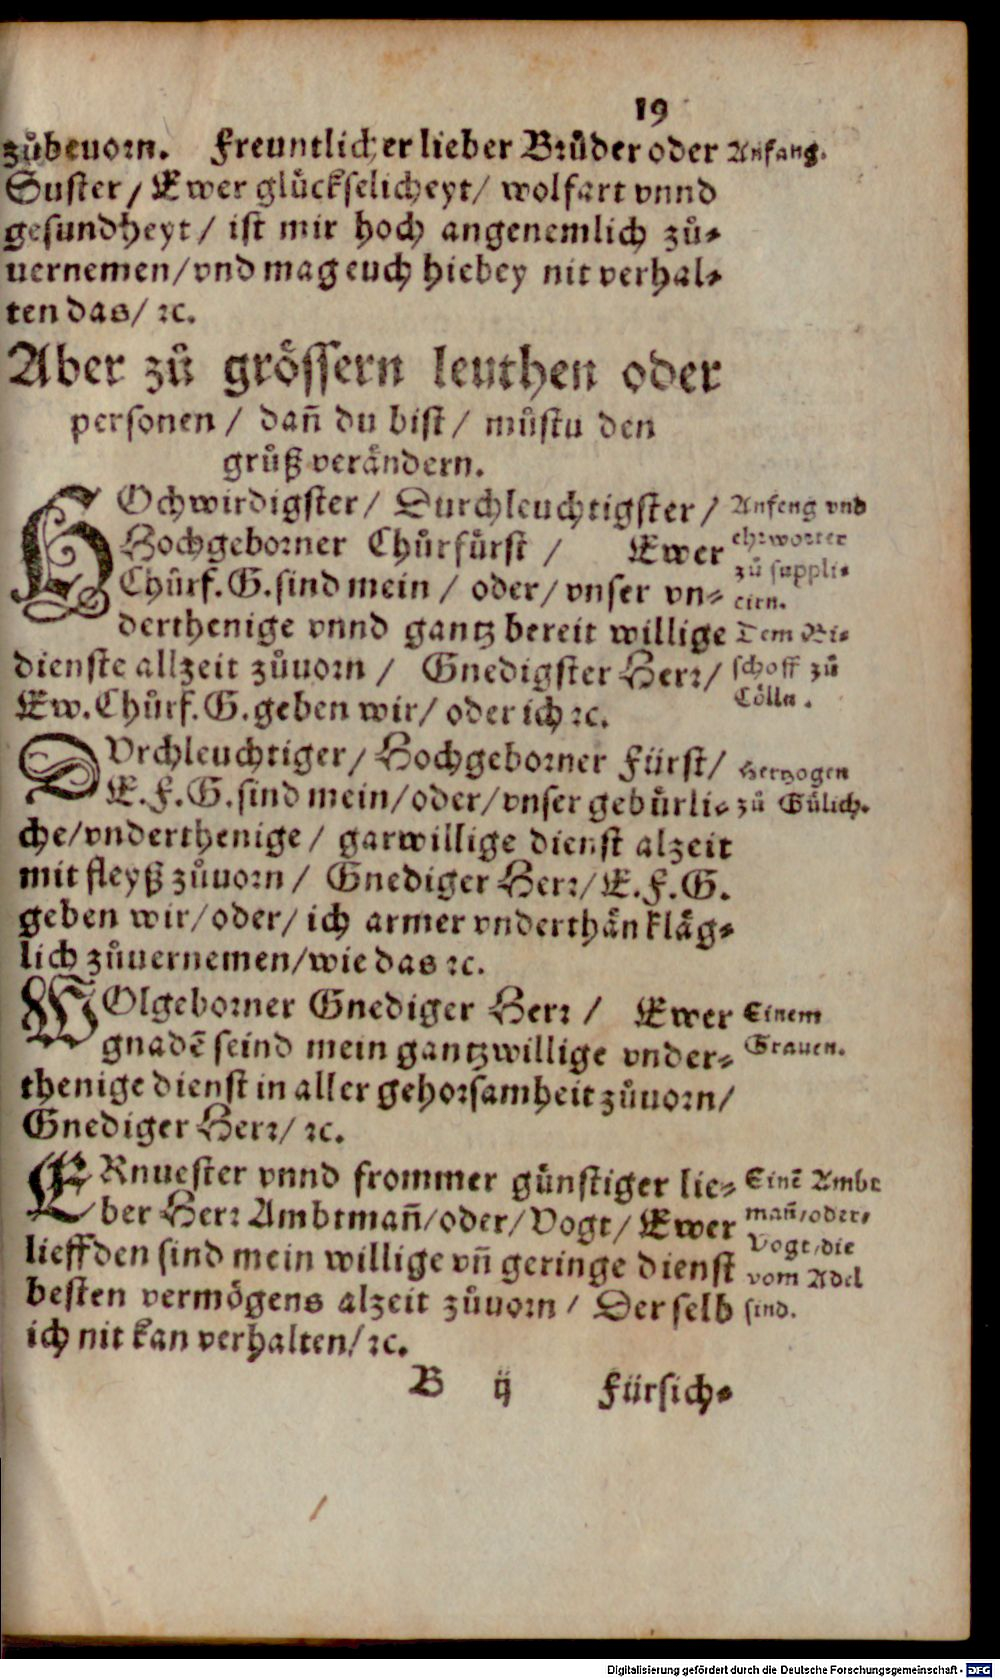 19
zůbeuorn. Freuntlicher lieber Brůder oder
Anfang.
Suster / Ewer glückselicheyt / wolfart vnnd
gesundheyt / ist mir hoch angenemlich zů-
uernemen / vnd mag euch hiebey nit verhal-
ten das / ꝛc.
Aber zů grössern leuthen oder
personen / dañ du bist / můstu den
grůß verändern.
HOchwirdigster / Durchleuchtigster /
Hochgeborner Chůrfürst / Ewer
Chůrf. G. sind mein / oder / vnser vn-
derthenige vnnd gantz bereit willige
dienste allzeit zůuorn / Gnedigster Herr /
Ew. Chůrf. G. geben wir / oder ich ꝛc.
Anfeng vnd
ehrworter
zů suppli-
cirn.
Dem Bi-
schoff zů
Cölln.
DVrchleuchtiger / Hochgeborner Fürst /
E. F. G. sind mein / oder / vnser gebůrli-
che / vnderthenige / garwillige dienst alzeit
mit fleyß zůuorn / Gnediger Herr / E. F. G.
geben wir / oder / ich armer vnderthån kläg-
lich zůuernemen / wie das ꝛc.
Hertzogen
zů Gülich.
WOlgeborner Gnediger Herr / Ewer
gnadē seind mein gantzwillige vnder-
thenige dienst in aller gehorsamheit zůuorn /
Gnediger Herr / ꝛc.
Einem
Grauen.
ERnuester vnnd frommer günstiger lie-
ber Herr Ambtmañ / oder / Vogt / Ewer
lieffden sind mein willige vñ geringe dienst
besten vermögens alzeit zůuorn / Der selb
ich nit kan verhalten / ꝛc.
Einē Ambt
mañ / oder /
Vogt / die
vom Adel
sind.
B ij Fürsich-
Digitalisierung gefördert durch die Deutsche Forschungsgemeinschaft - DFG